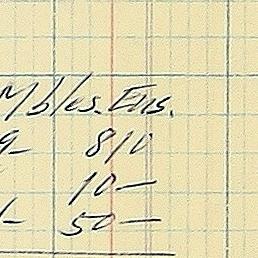 Mbles. Ens.
9- 810
10-
1- 50-